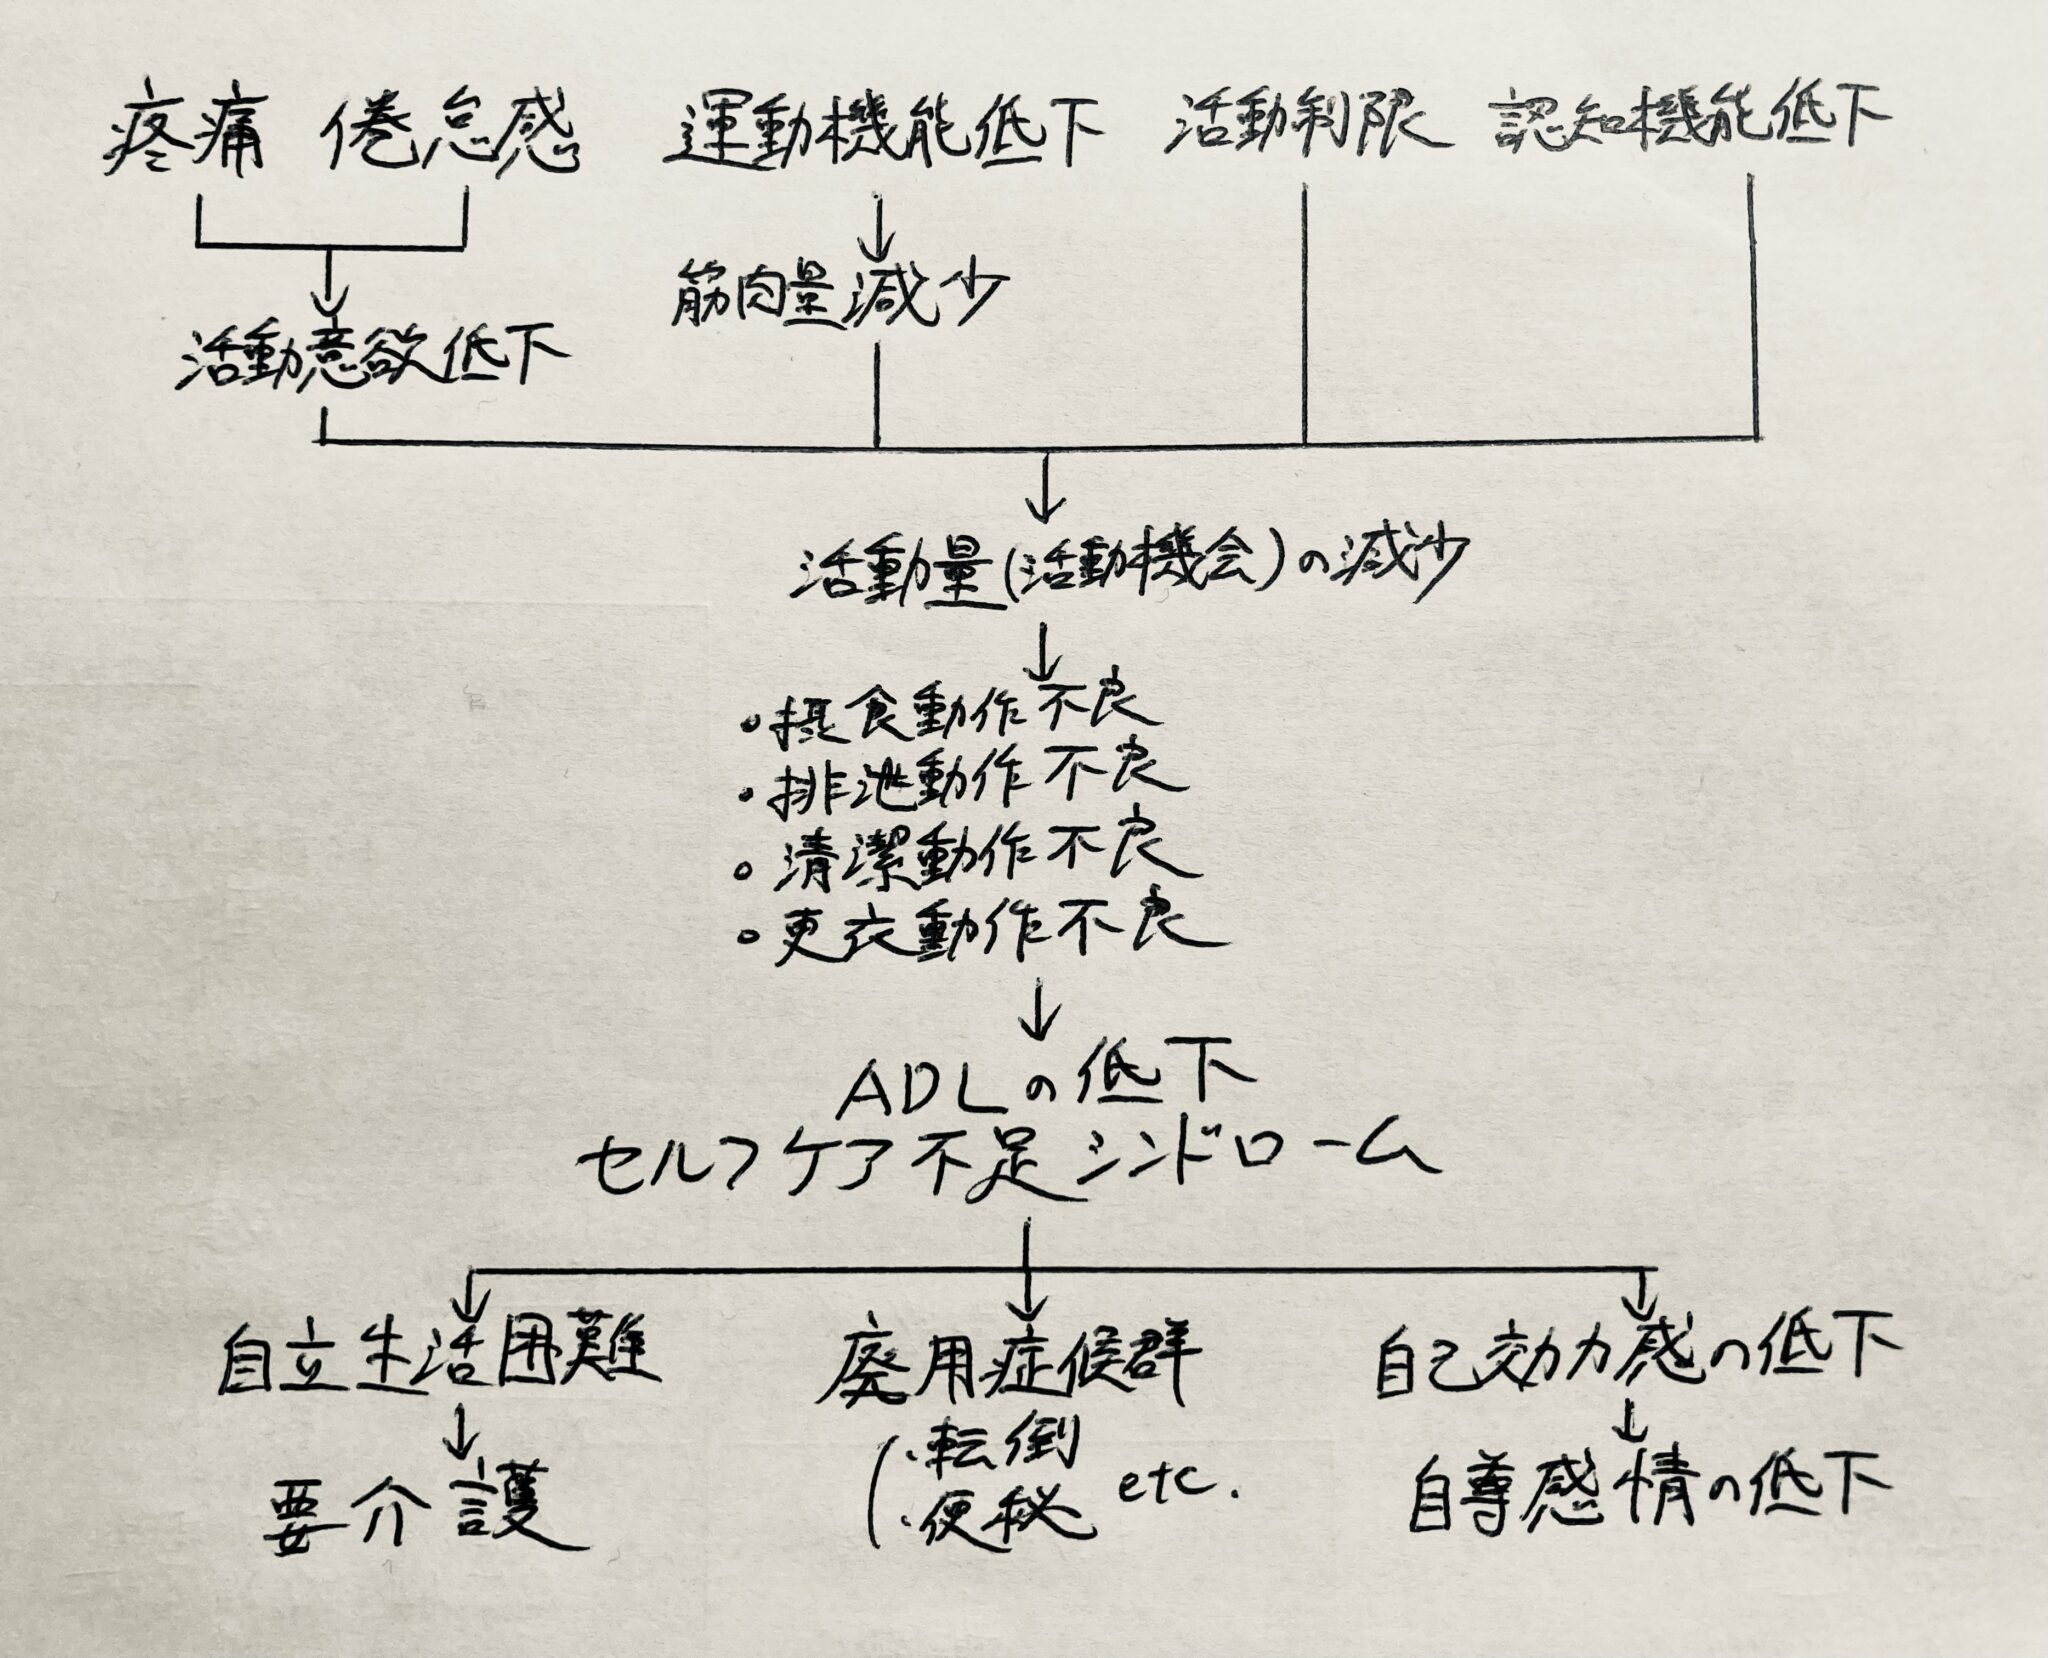 疼痛 倦怠感 運動機能低下 活動制限 認知機能低下
筋肉量減少
活動意欲低下
活動量(活動機会)の減少
・摂食動作不良
・排泄動作不良
・清潔動作不良
・更衣動作不良
ADLの低下
セルフケア不足シンドローム
自立生活困難 廃用症候群 自己効力感の低下
・転倒
・便秘 etc.
要介護 自尊感情の低下